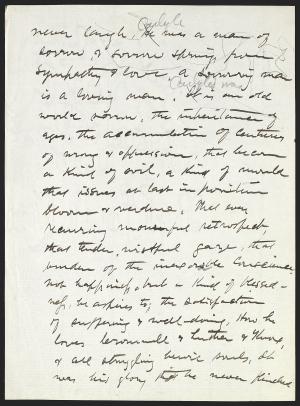 Carlyle
never laugh, he was a man of
sorrow, & sorrow springs from
sympathy & love, a sorrowing man
(Carlyle's was)
is a loving man. It is an old
world sorrow, the inheritance of
ages, the accumulation of centuries
of wrong & oppression, that became
a kind of soil, a kind of mould
that issues at last in
bloom & verdure. That ever
recurring mournful retrospect,
that tender, wistful gaze, that
burden of the inexorable conscience.
not happiness, but a kind of blessed-
ness, he aspires to, the satisfaction
of suffering & well-doing. How he
loves Cromwell & Luther & Knox,
& all struggling heroic souls. It
was his glory that he never flinched